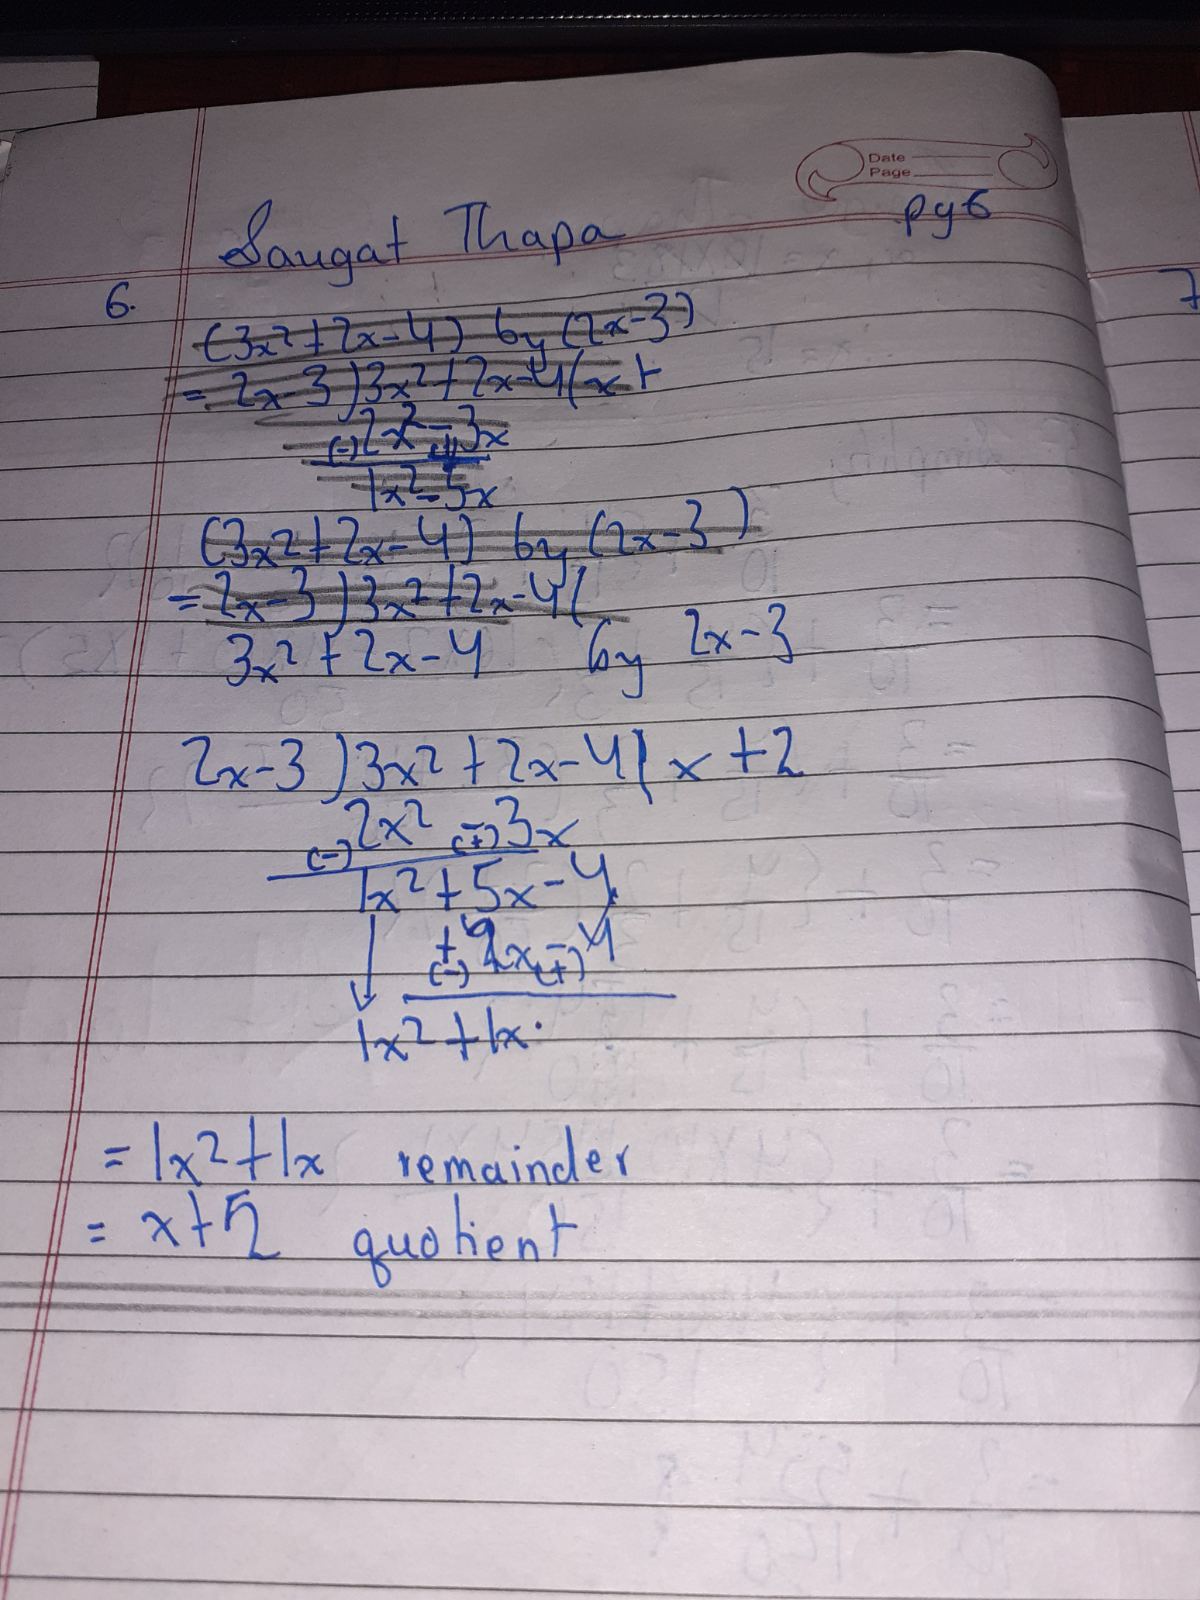 Date
Page
pg 6
Saugat Thapa
6.
7
(3x²+2x-4) by (2x-3)
= 2x-3)3x²+2x-4(x+
(-)2x²-(+)3x
1x²-5x
(3x²+2x-4) by (2x-3)
= 2x-3)3x²+2x-4(
3x²+2x-4 by 2x-3
2x-3)3x²+2x-4(x+2
(-)2x² -(+)3x
1x²+5x-4
+(-)4x-(+)4
1x²+1x
= 1x²+1x remainder
= x+2 quotient